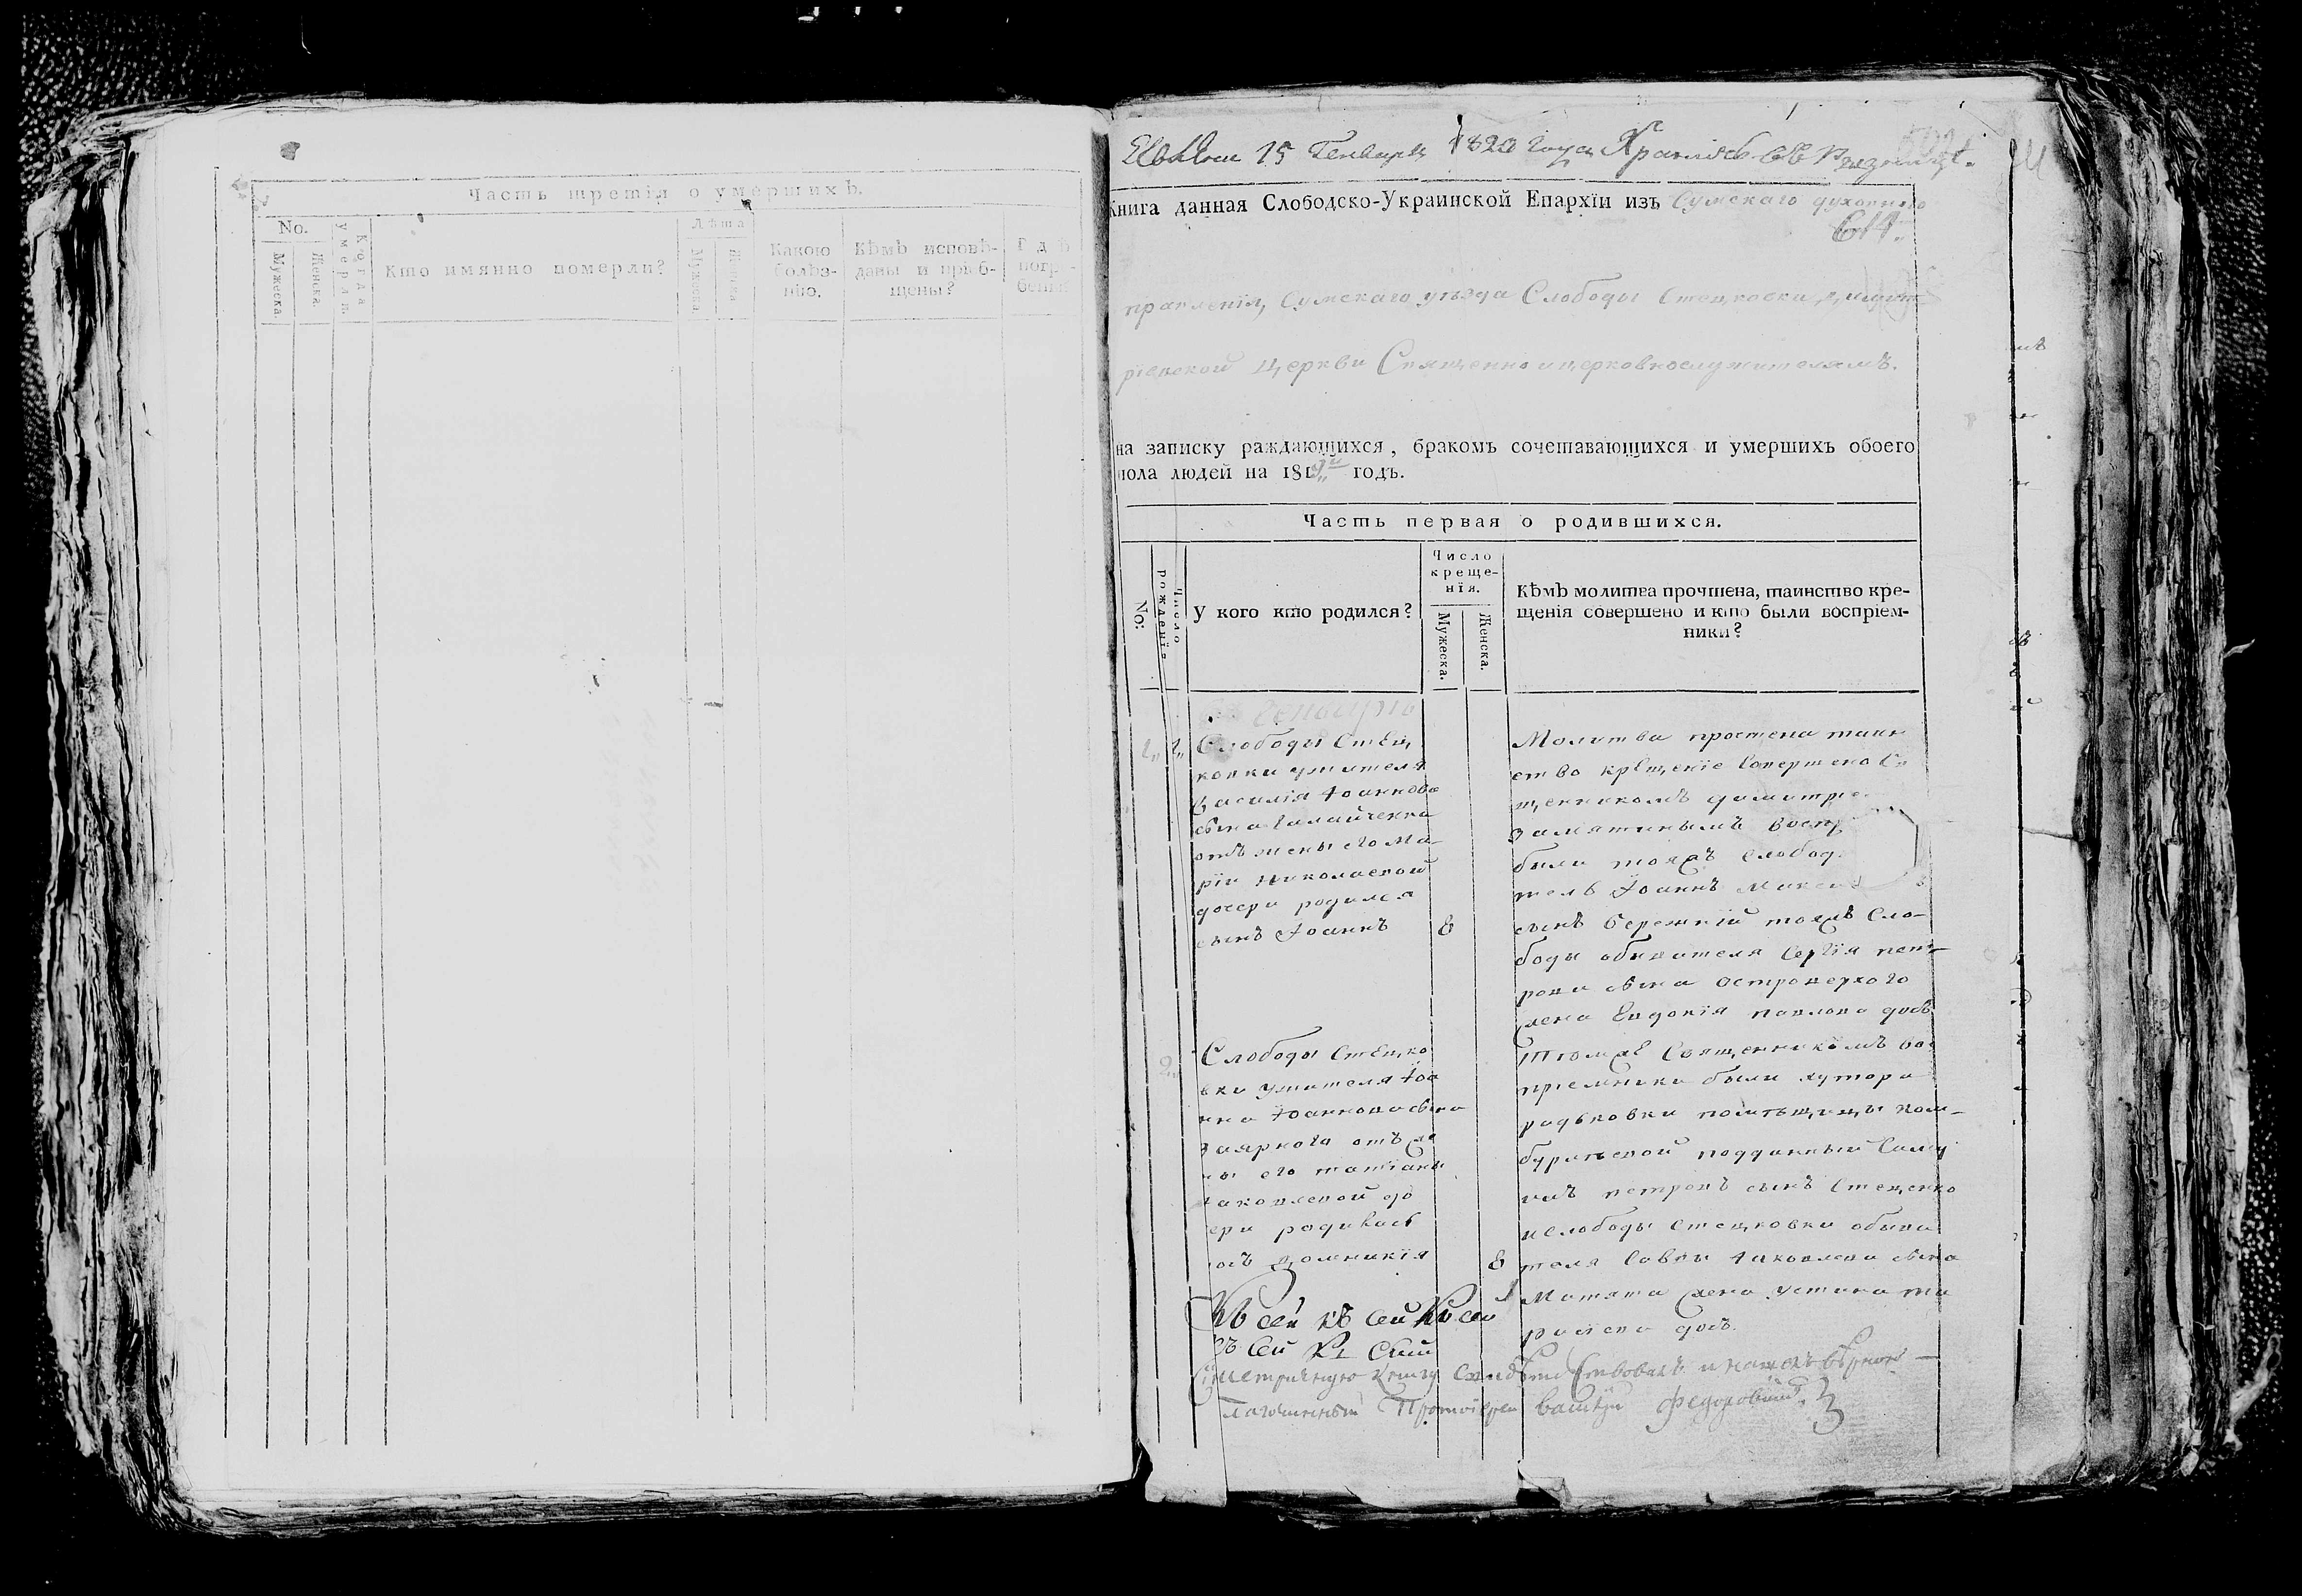 Часть третія о умершихъ.
No.
Мужеска.
Женска.
Когда умерли
Кто имянно померли?
Лѣта
Мужеска
Женска
Какою болѣз-
нію.
Кѣмъ исповѣ-
даны и пріоб-
щены?
Гдѣ
погр
бены
15 Генваря 1820 года
Книга данная Слободско-Украинской Епархїи изъ Сумскаго духовнаго
правленія, Сумскаго уѣзда Слободы Стецковки, димит
ріевской церкви Священно и церковнослужителямъ.
на записку раждающихся, бракомъ сочетавающихся и умершихъ обоего
пола людей на 1819 годъ.
Часть первая о родившихся.
No:
Число рожденїя
У кого кто родился?
Число
креще-
нїя.
Мужеска.
Женска.
Кѣмъ молитва прочтена, таинство кре-
щенія совершено и кто были воспріем-
ники?
Генварь
Слободы Стец
ковки жителя
Василія Іоаннова
сына Галайченка
отъ жены его Ма-
ріи Николаевой
дочери родился
сынъ Іоаннъ 8
Молитва прочтена таин
ство крещеніе совершено С
щенникомъ димитріе
Замятинымъ воспр
были тояжъ слобод
тель Іоаннъ Макси
сынъ бережній тояжъ Сло-
боды обывателя Сергія пет-
рова сына Островерхого
жена Евдокія павлова дочь
2.
Слободы Стецко
вки жителя Іоа
нна Іоаннова сына
Заярного отъ же
ны его татіаны
Іаковлевой до
ери родилась
очь Домникія 8
Тѣмже Священникомъ вос
пріемники были хутора
радьковки помѣщицы ком-
бурлѣевой подданный Саму
илъ петровъ сынъ Стеценко
и слободы Стецковки обыва
теля Саввы Іаковлева сына
жена Устина
дочь.
Къ сей къ сей Къ сей
къ Сей Къ Сей
Метричную Книгу Свидѣтельствовалъ и нашелъ вѣрною
лагочинный Протоіерей Василій Федоровскій